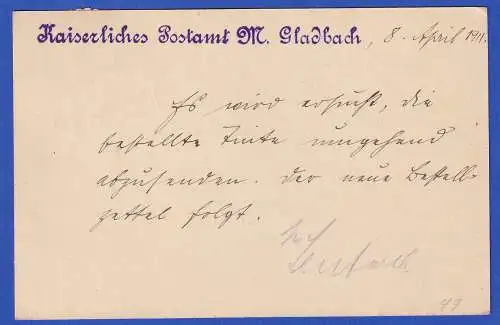 Kaiserliches Postamt M. Gladbach, 8. April 1911.
Es wird ersucht, die
bestellte Tinte umgehend
abzusenden. Der neue Bestell-
zettel folgt.
49